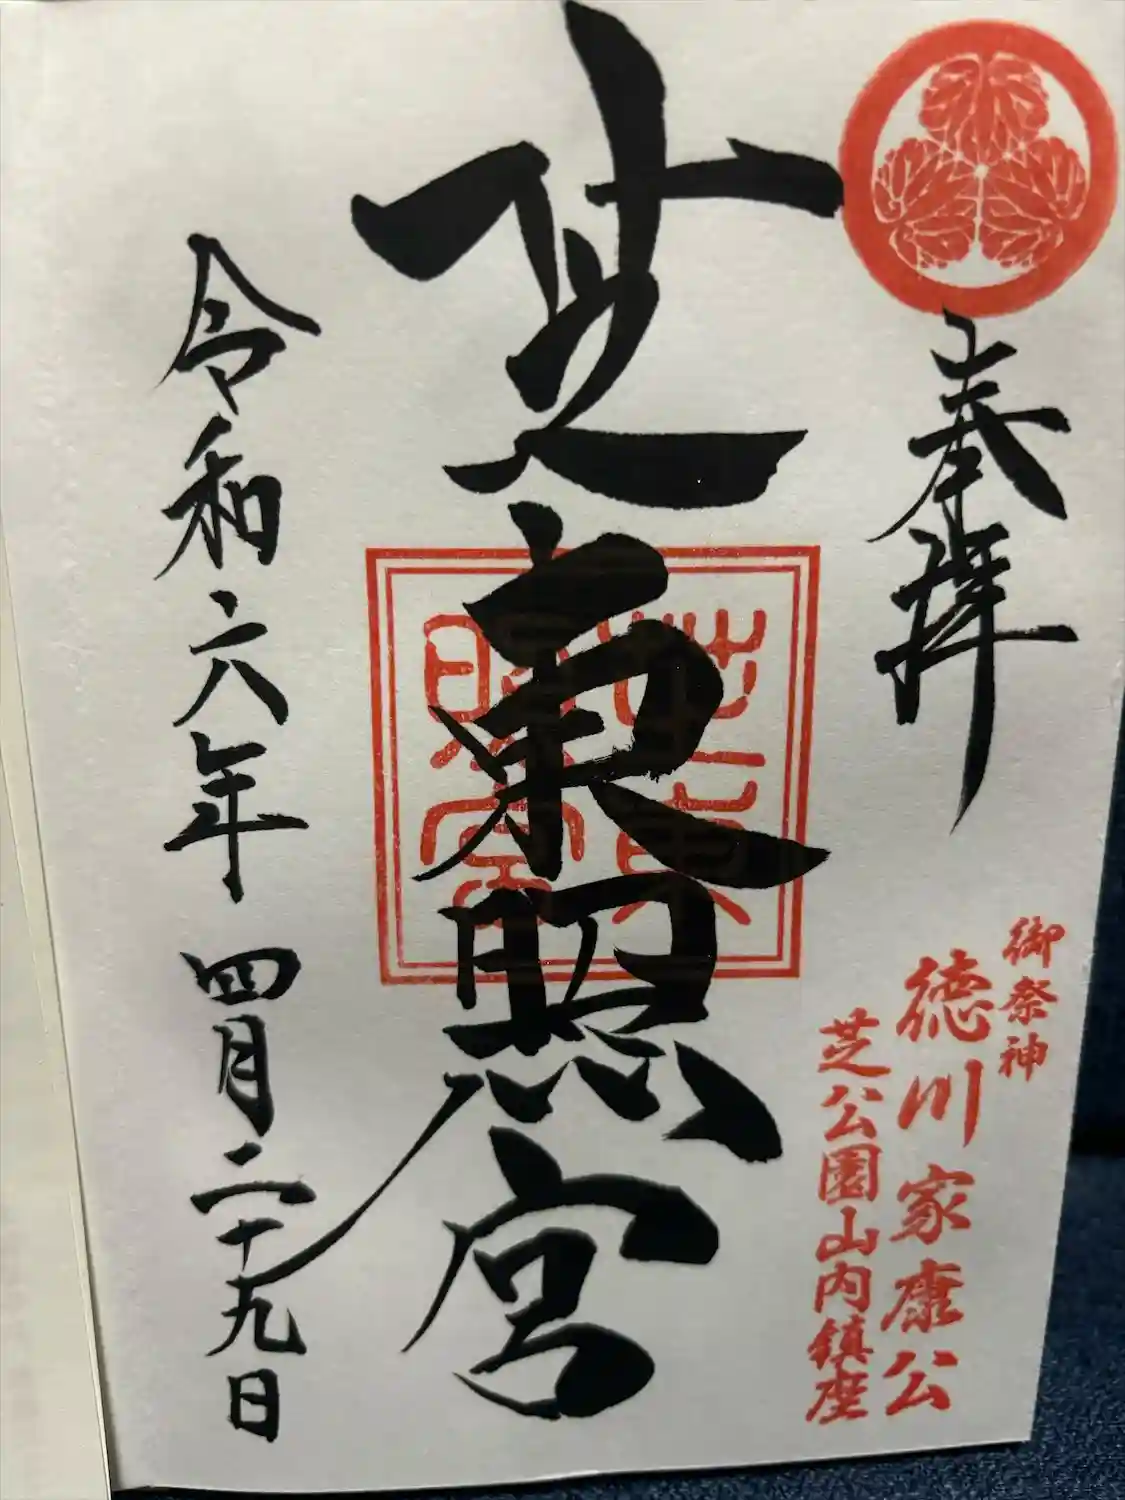 奉拝
御祭神
徳川家康公
芝公園山内鎮座
芝東照宮
芝東照宮
令和六年 四月二十九日